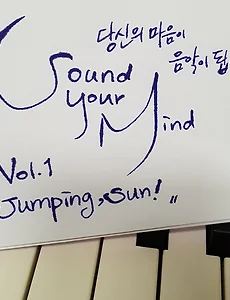 당신의 마음이
음악이 됩
Sound
your
Mind
Vol.1
Jumping, Sun! "